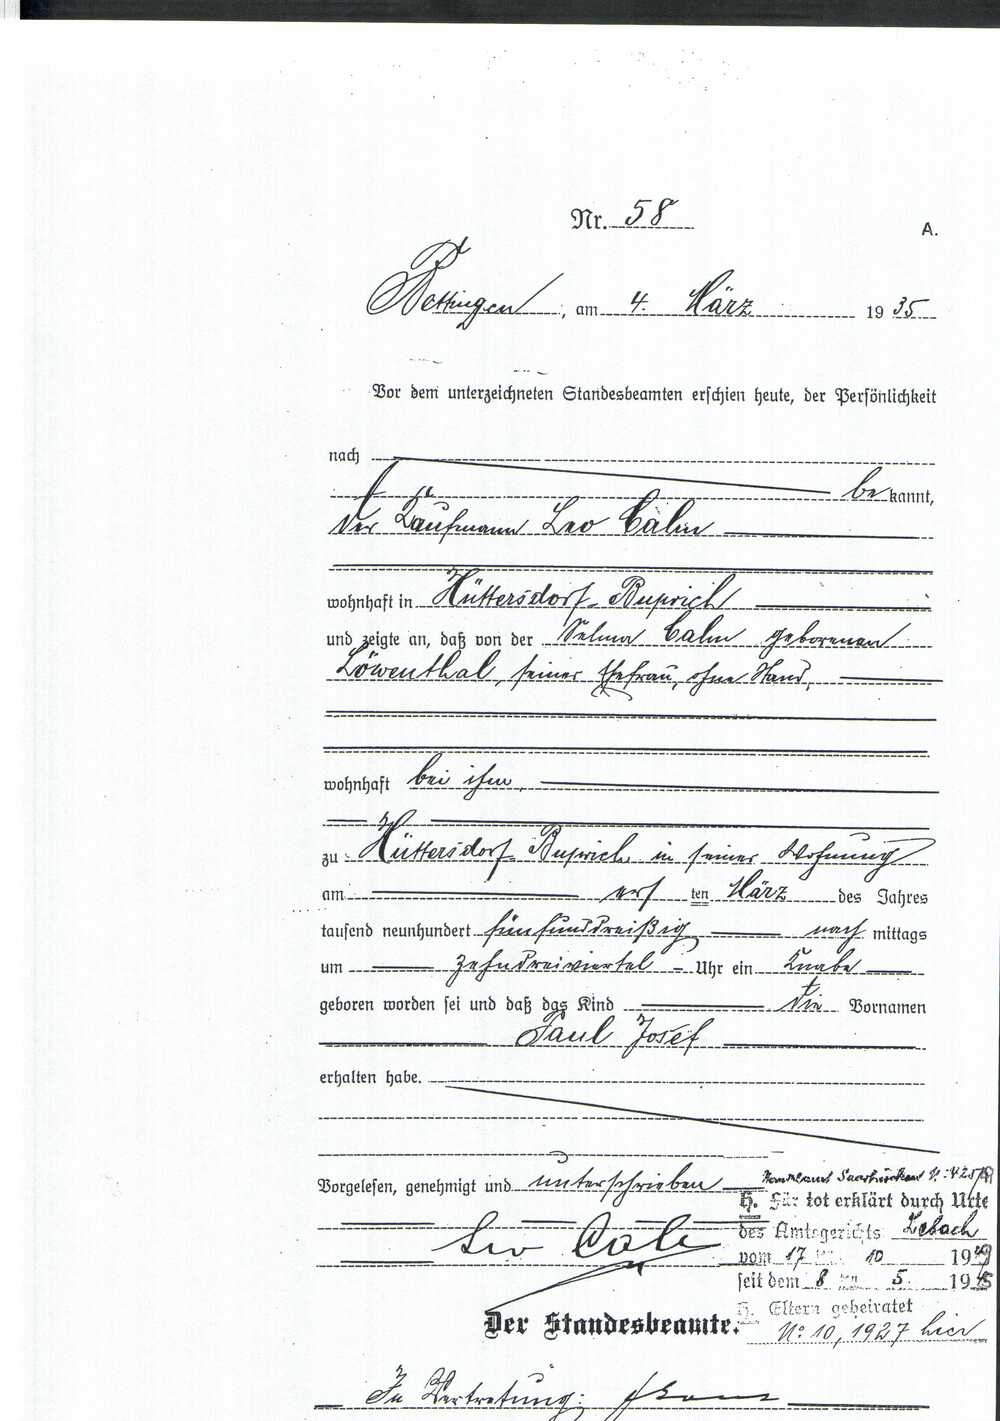 Nr. 58
A.
Bettingen, am 4. März 1935
Vor dem unterzeichneten Standesbeamten erschien heute, der Persönlichkeit
nach
be kannt,
der Kaufmann Leo Calm
wohnhaft in Hüttersdorf-Buprich
und zeigte an, daß von der Selma Calm geborenen
Löwenthal, seiner Ehefrau, ohne Stand,
wohnhaft bei ihm,
zu Hüttersdorf-Buprich in seiner Wohnung
am ersten März des Jahres
tausend neunhundert fünfunddreißig nach mittags
um zehndreiviertel Uhr ein Knabe
geboren worden sei und daß das Kind die Vornamen
Paul Josef
erhalten habe.
Vorgelesen, genehmigt und unterschrieben
Standesamt Saarbrücken
H. Für tot erklärt durch Urte
des Amtsgerichts Lebach
vom 17 10 1949
seit dem 8 5. 1945
Leo Calm
H. Eltern geheiratet
Der Standesbeamte.
No 10, 1927 hier
In Vertretung: